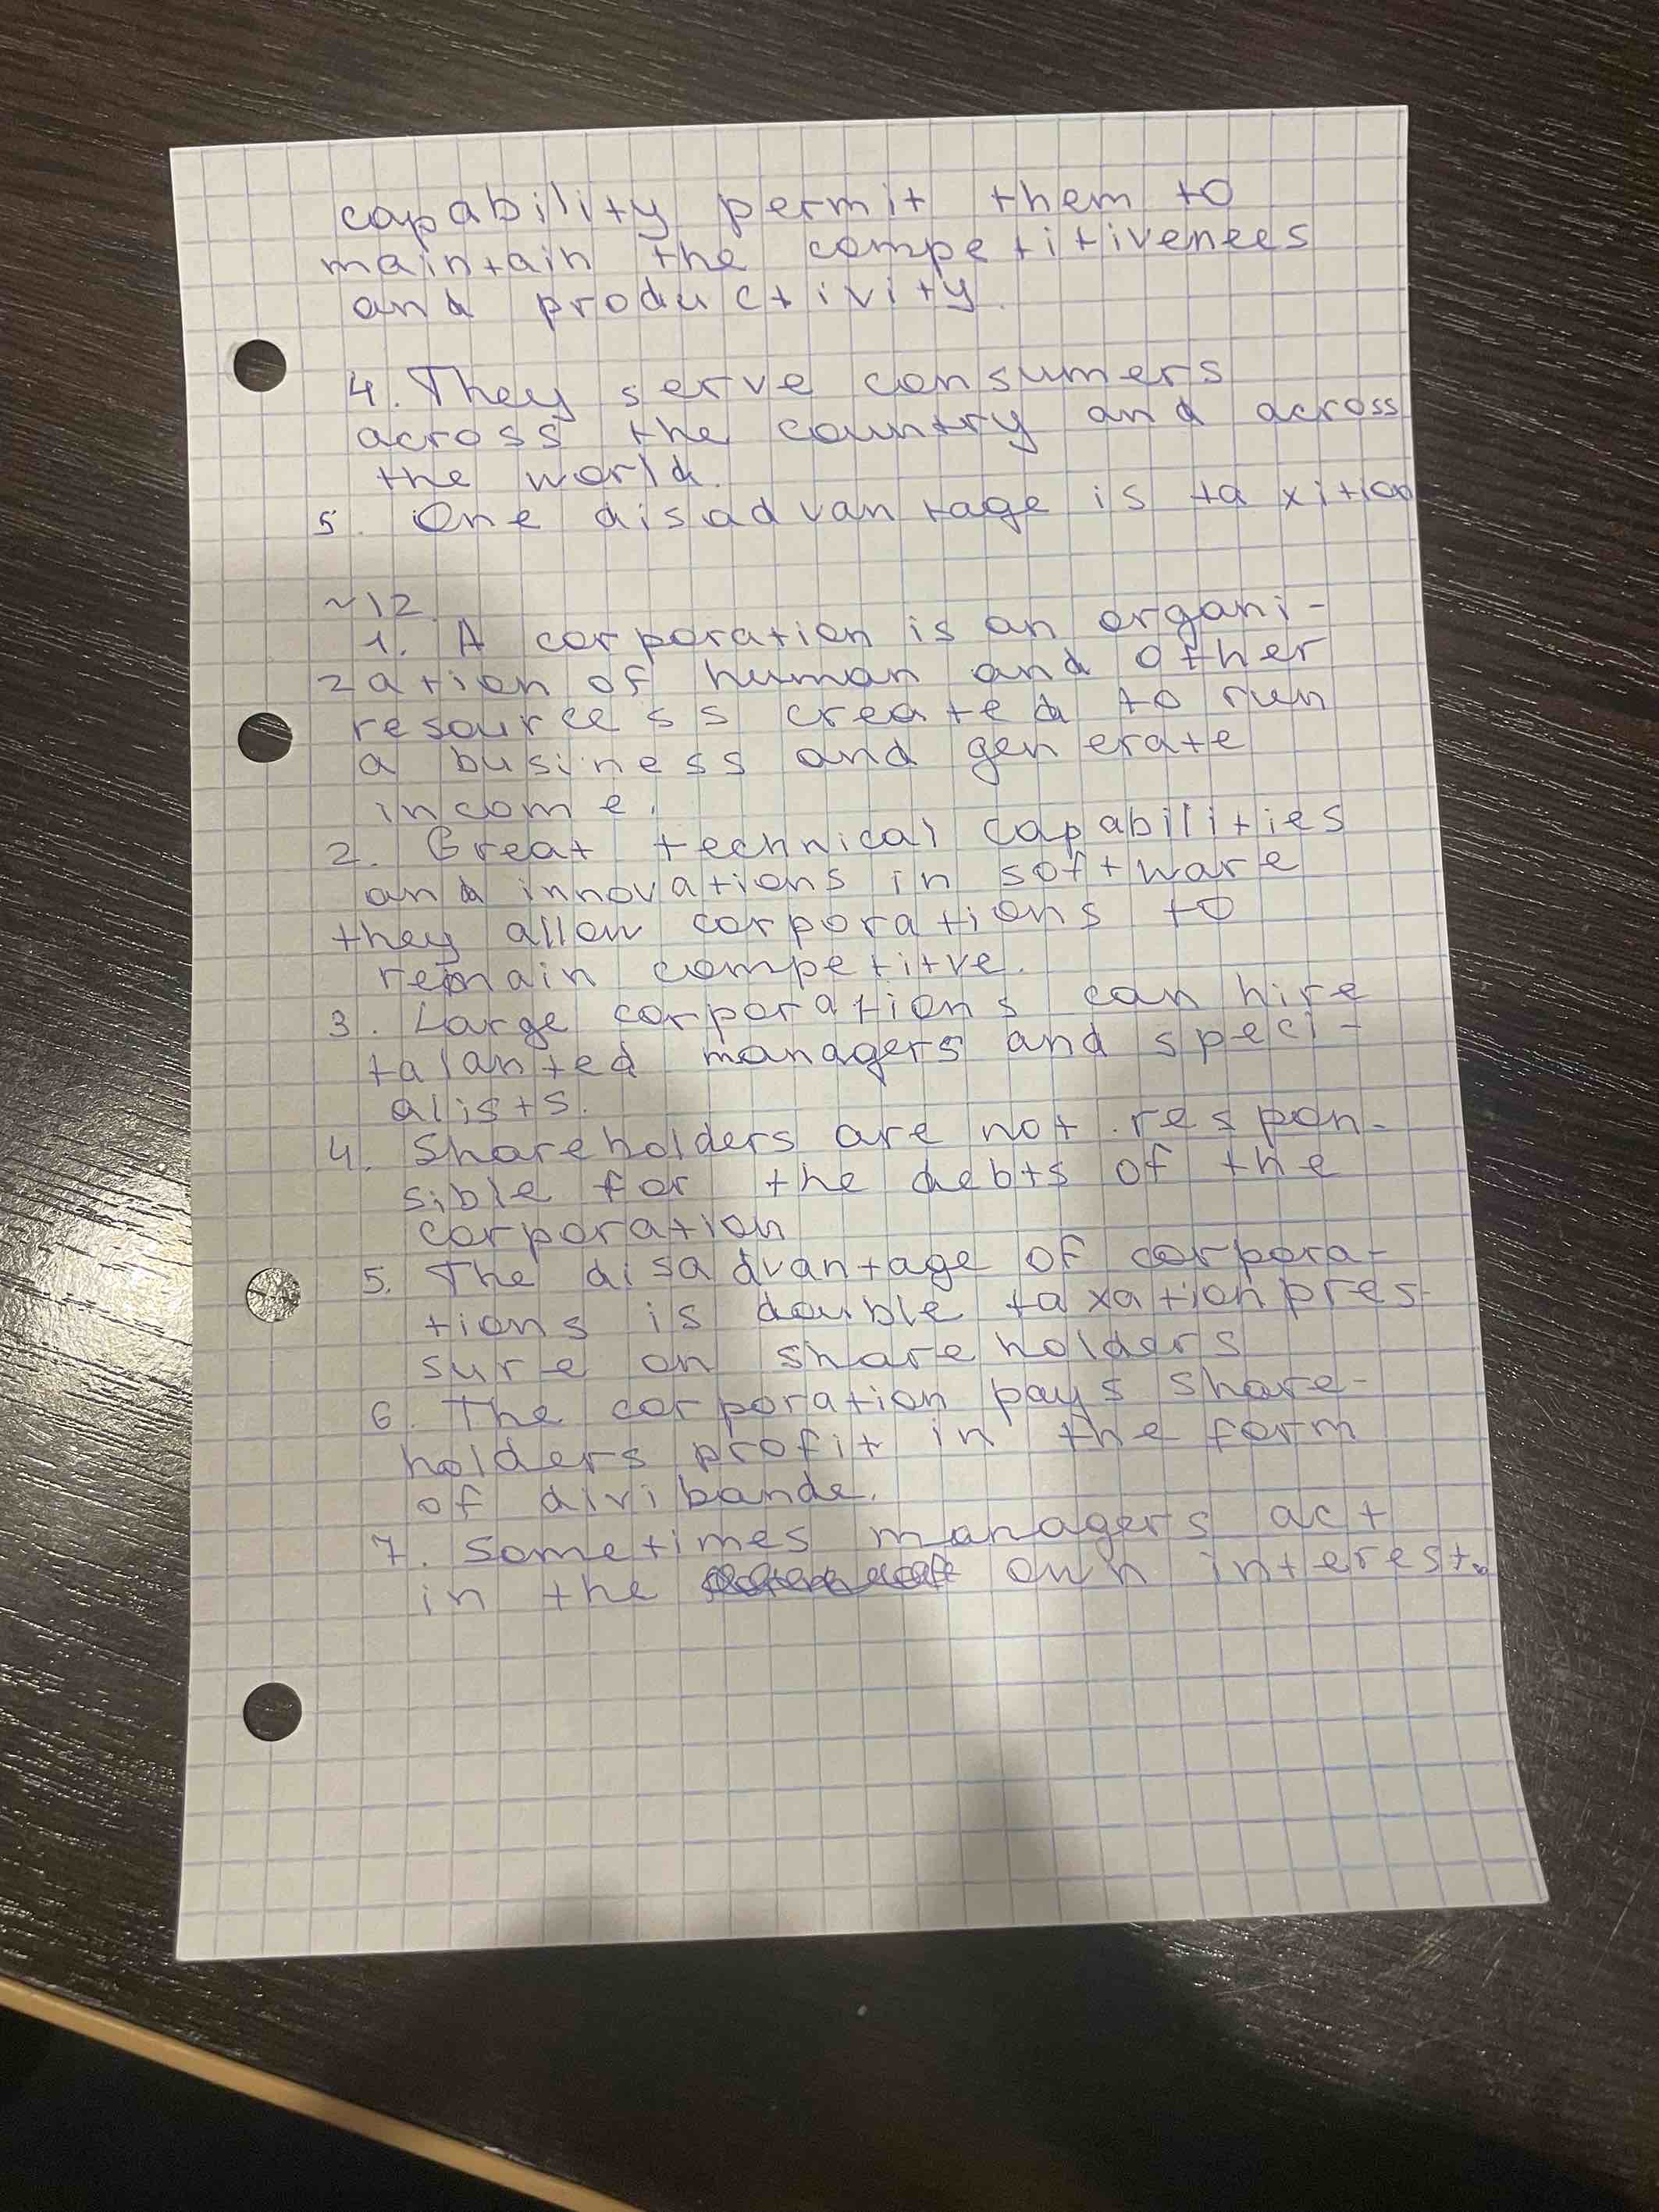 capability permit them to
maintain the competitivenees
and productivity.
4. They serve consumers
across the country and across
the world.
5. One disadvantage is taxition
~12.
1. A corporation is an organi-
zation of human and other
resourcess created to run
a business and generate
income.
2. Great technical capabilities
and innovations in software
they allow corporations to
remain competitve.
3. Large corporations can hire
talanted managers and speci-
alists.
4. Shareholders are not respon-
sible for the debts of the
corporation
5. The disadvantage of corpora-
tions is double taxation pres-
sure on shareholders
6. The corporation pays share-
holders profit in the form
of divibande.
7. Sometimes managers act
in the own interest.